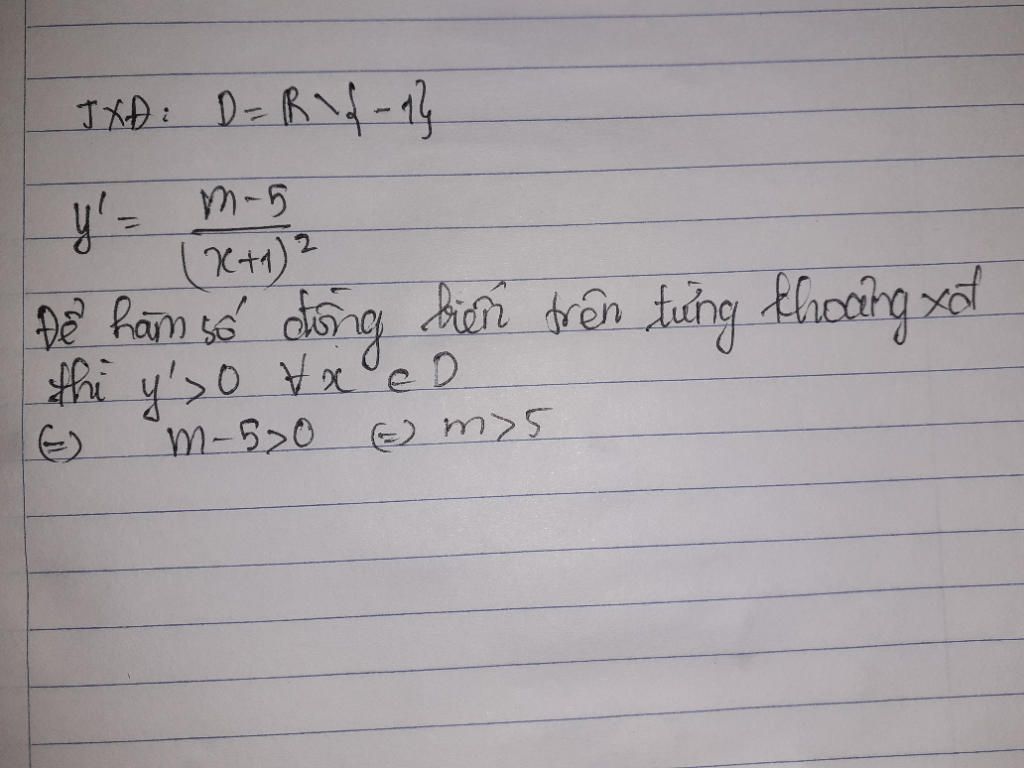 TXĐ: D = R \ {-1}
y' = m-5 / (x+1)²
Để hàm số đồng biến trên từng khoảng xđ
thì y' > 0 ∀ x ∈ D
⇔ m-5>0 ⇔ m>5